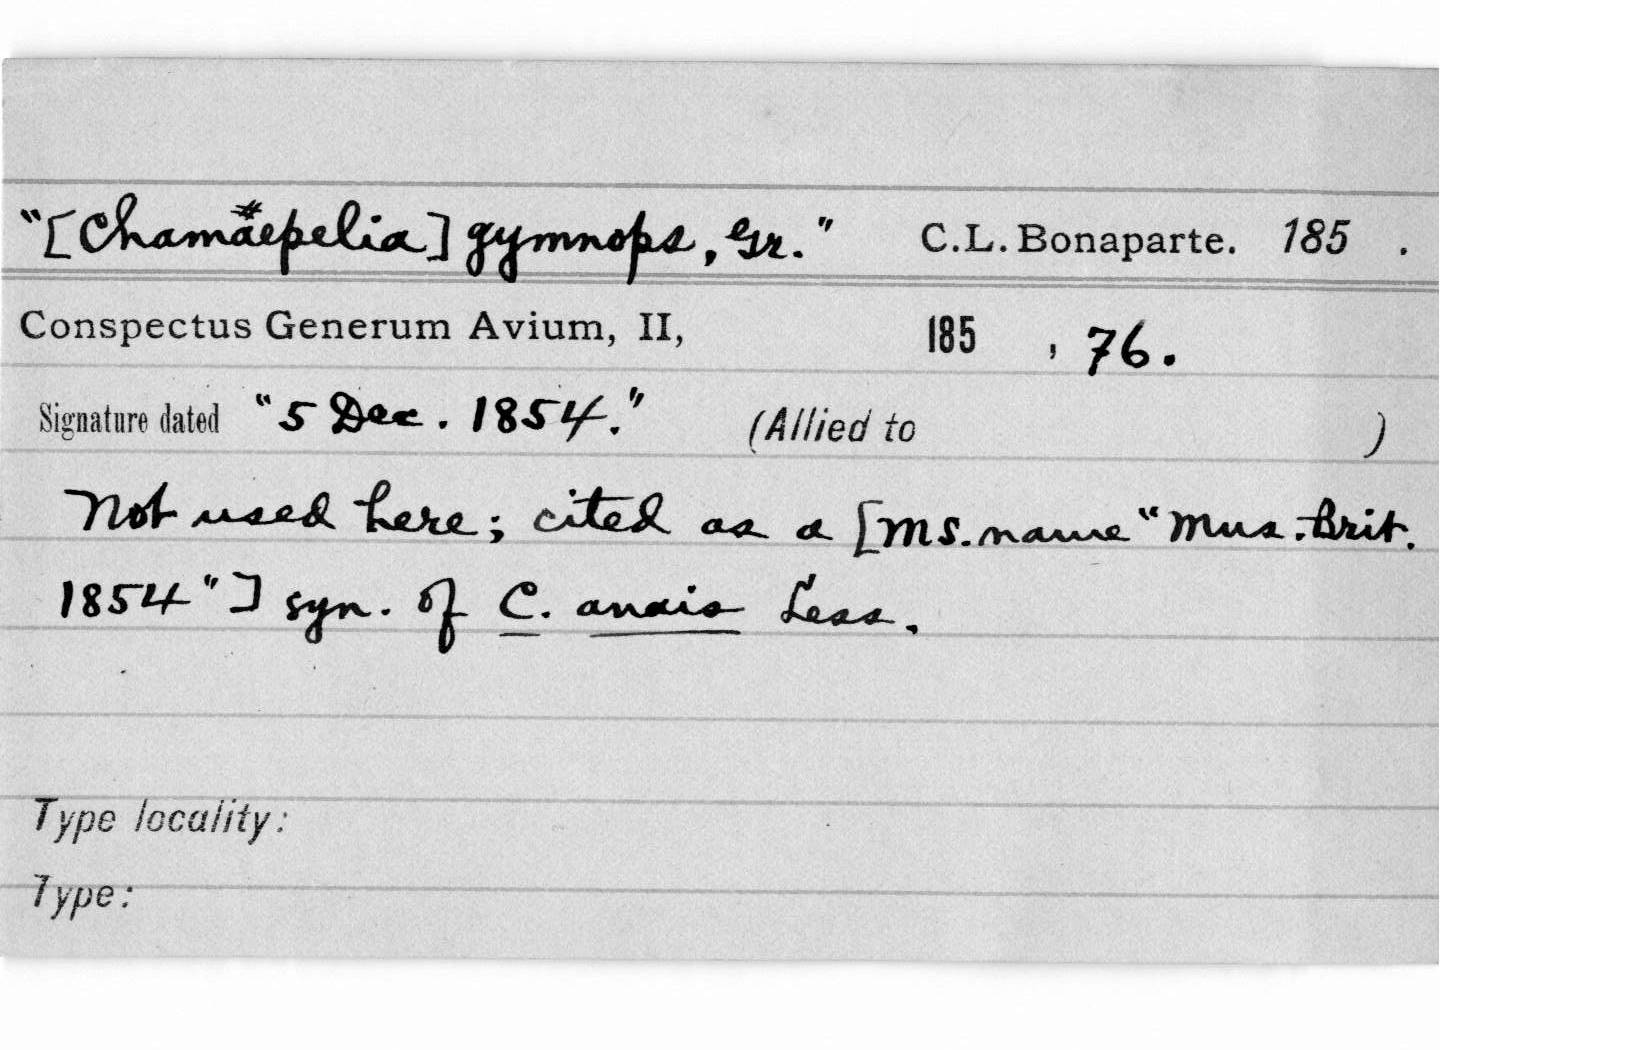 "[Chamaepelia] gymnops, Gr." C.L. Bonaparte. 185 .
Conspectus Generum Avium, II, 185 , 76.
Signature dated "5 Dec. 1854." (Allied to )
Not used here; cited as a [MS. name "Mus. Brit.
1854"] syn. of C. anais Less.
Type locality:
Type: